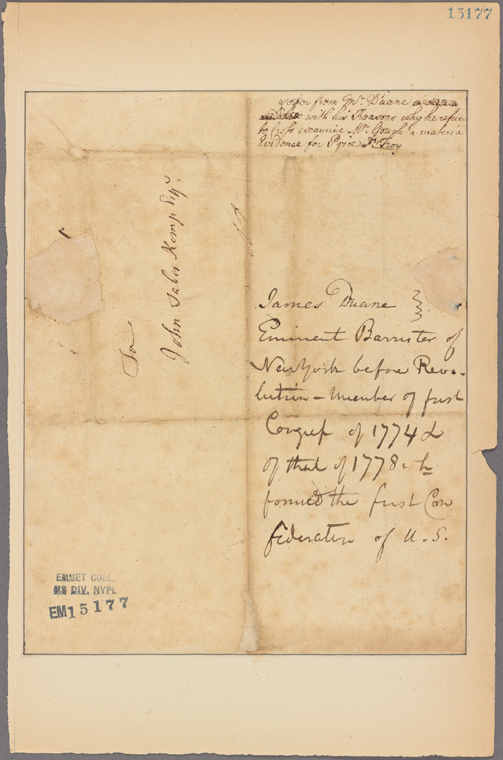 15177
from Mr. Duane
with his Reasons why he refuses
to Cross examine Mr. Gough a materia
Evidence for Price Tr. Troy
To
John Tabor Kemp Esqr.
James Duane
Eminent Barrister of
New York before Revo-
lution - Member of first
Congress of 1774 &
of that of 1778 wh
formed the first Con
federation of U. S.
EMMET COLL.
MS DIV. NYPL
EM15177